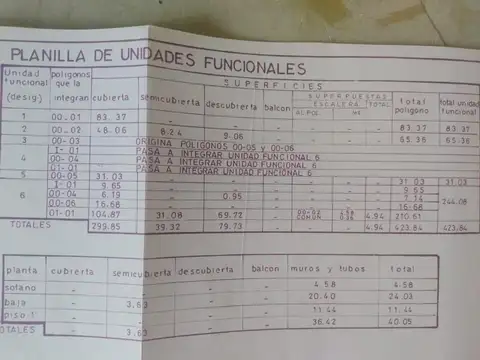 PLANILLA DE UNIDADES FUNCIONALES
Unidad funcional (desig.) polígonos que la integran SUPERFICIES
cubierta semicubierta descubierta balcon SUPERPUESTAS ESCALERA TOTAL total polígono total unidad funcional
1 00-01 83.37 - - - - - - 83.37 83.37
2 00-02 48.06 8.24 9.06 - - - - 65.36 65.36
3 00-03 ORIGINA POLIGONOS 00-05 y 00-06
4 I-01 PASA A INTEGRAR UNIDAD FUNCIONAL 6
00-04 PASA A INTEGRAR UNIDAD FUNCIONAL 6
01-01 PASA A INTEGRAR UNIDAD FUNCIONAL 6
5 00-05 31.03 - - - - - - 31.03 31.03
6 I-01 9.65 - - - - - - 9.65 244.08
00-04 6.19 - 0.95 - - - - 7.14
00-06 16.68 - - - - - - 16.68
01-01 104.87 31.08 69.72 - 4.94 210.61
TOTALES 299.85 39.32 79.73 - 4.94 423.84 423.84
planta cubierta semicubierta descubierta balcon muros y tubos total
sotano - - - - 4.58 4.58
baja - 3.63 - - 20.40 24.03
piso 1° - - - - 11.44 11.44
TOTALES - 3.63 - - 36.42 40.05